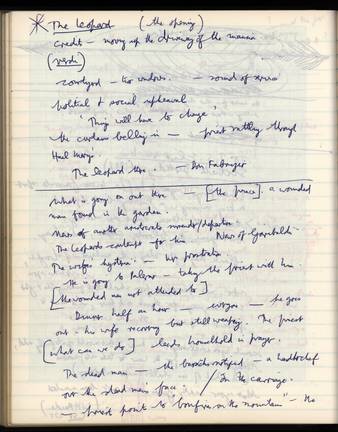 * The Leopard (the opening)
credit – moving up the driveway of the mansion
(Verdi)
courtyard – the windows. – sound of
political & social upheaval
'Things will have to change'
the curtain bellying in – priest rattling through
Hail Marys.
The Leopard there. – Don Fabrizio
What is going on out there – [the prince]. a wounded
man found in the garden.
News of another aristocrat's departure
The Leopard's contempt for him – News of Garibaldi
The wife's hysteria – her prostration
He is going to Palermo – taking the priest with him
[the wounded are not attended to]
Dinner half an hour – – he goes
out – his wife recovering but still weeping. The priest
[what can we do] leads household in prayer.
The dead man – the noticed – a handkerchief
over the dead man's face / In the carriage.
– priest points to bonfires on the mountain" – the